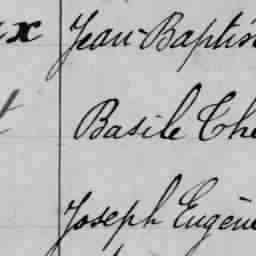 Jean-Baptis
Basile Che
Joseph Eugène